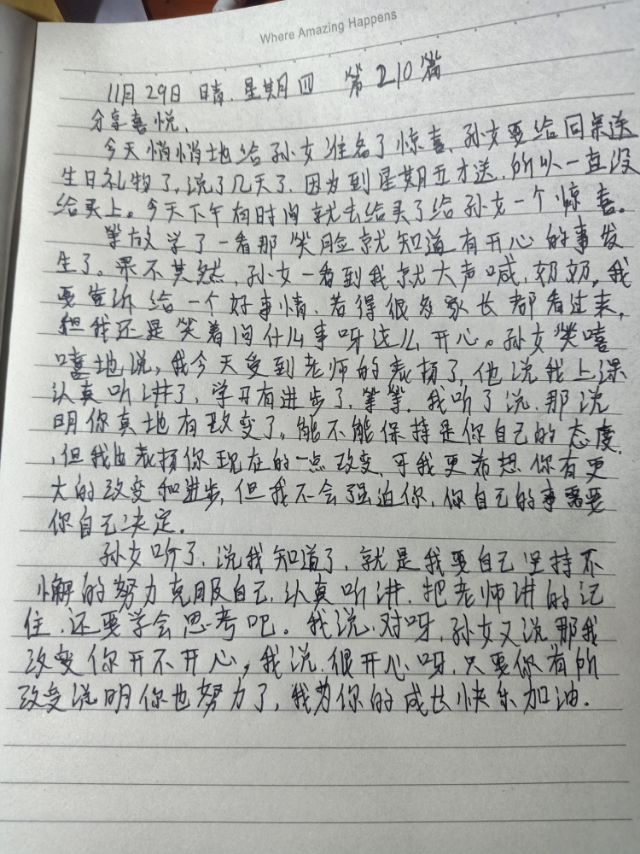 Where Amazing Happens
11月29日 晴. 星期四 第210篇
分享喜悦.
今天悄悄地给孙女准备了惊喜、孙女要给同桌送
生日礼物了,说了几天了.因为到星期五才送.所以一直没
给买上。今天下午有时间就去给买了给孙女一个惊喜。
等放学了一看那笑脸就知道有开心的事发
生了.果不其然,孙女一看到我就大声喊,奶奶.我
要告诉给一个好事情,惹得很多家长都看过来,
但我还是笑着问什么事呀这么开心。孙女笑嘻
嘻地说,我今天受到老师的表扬了,他说我上课
认真听讲了,学习有进步了,等等.我听了说.那说
明你真地有改变了,能不能保持是你自己的态度
,但我也表扬你现在的一点改变,可我更希想你有更
大的改变和进步,但我不会强迫你,你自己的事需要
你自己决定.
孙女听了.说我知道了.就是我要自己坚持不
懈的努力克服自己.认真听讲.把老师讲的记
住.还要学会思考吧。我说.对呀,孙女又说那我
改变你开不开心,我说.很开心呀.只要你有所
改变说明你也努力了,我为你的成长快乐加油.